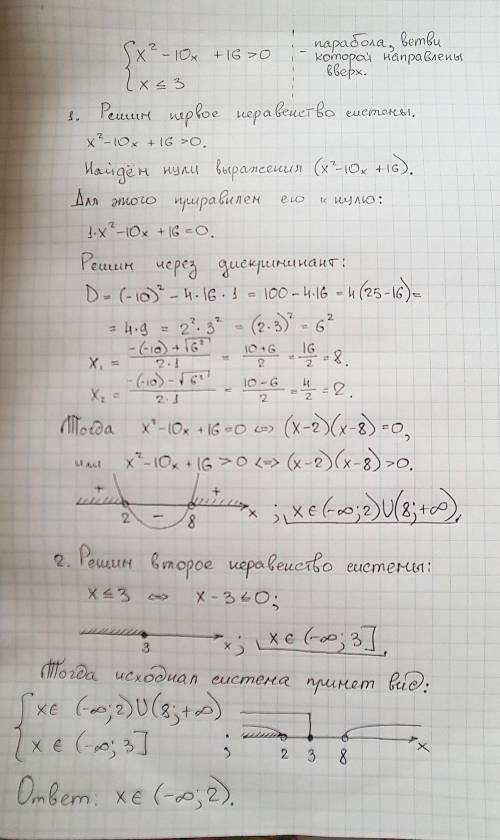 { x² - 10x + 16 > 0
{ x ≤ 3
- парабола, ветви
которой направлены
вверх.
1. Решим первое неравенство системы.
x² - 10x + 16 > 0.
Найдём нули выражения (x² - 10x + 16).
Для этого приравняем его к нулю:
1·x² - 10x + 16 = 0.
Решим через дискриминант:
D = (-10)² - 4·16·1 = 100 - 4·16 = 4(25-16) =
= 4·9 = 2²·3² = (2·3)² = 6²
x₁ = (-(-10)+√6²)/(2·1) = (10+6)/2 = 16/2 = 8.
x₂ = (-(-10)-√6²)/(2·1) = (10-6)/2 = 4/2 = 2.
Тогда x² - 10x + 16 = 0 <=> (x-2)(x-8) = 0,
или x² - 10x + 16 > 0 <=> (x-2)(x-8) > 0.
+ 2 - 8 + x ; x ∈ (-∞; 2) ∪ (8; +∞).
2. Решим второе неравенство системы:
x ≤ 3 <=> x - 3 ≤ 0;
3 x ; x ∈ (-∞; 3].
Тогда исходная система примет вид:
{ x ∈ (-∞; 2) ∪ (8; +∞)
{ x ∈ (-∞; 3]
; 2 3 8 x
Ответ: x ∈ (-∞; 2).